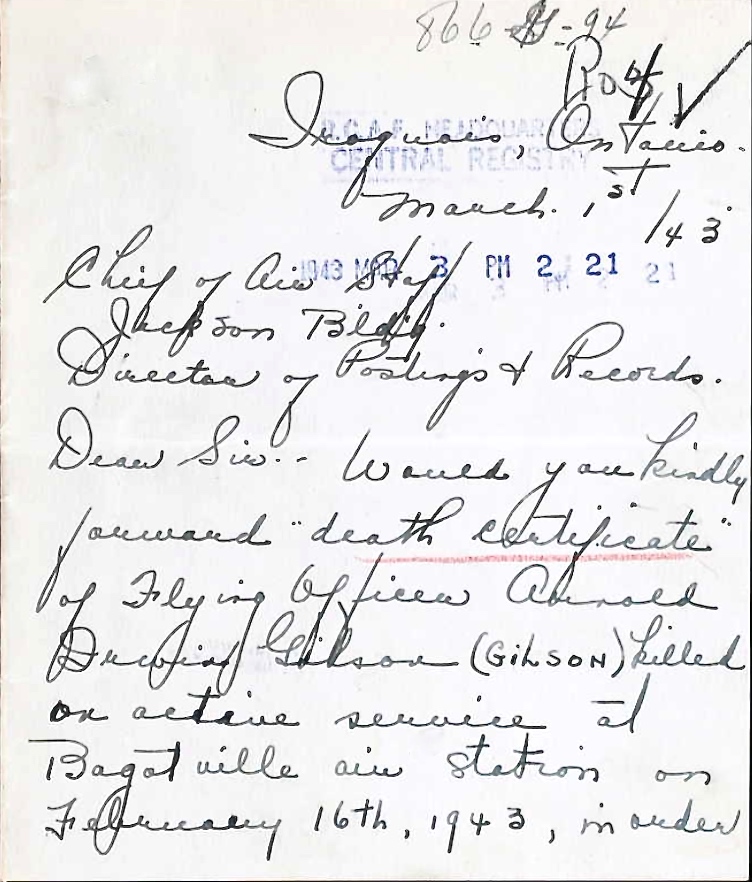 866 - 94
R.C.A.F. HEADQUARTERS
CENTRAL REGISTRY
Iroquois, Ontario.
March. 1st /43
1943 MAR 3 PM 2 21
Chief of Air Staff
Jackson Bldg.
Director of Postings & Records.
Dear Sir:- Would you kindly
forward "death certificate"
of Flying Officer Arnold
Gilson (GILSON) killed
on active service at
Bagotville air station on
February 16th, 1943, in order